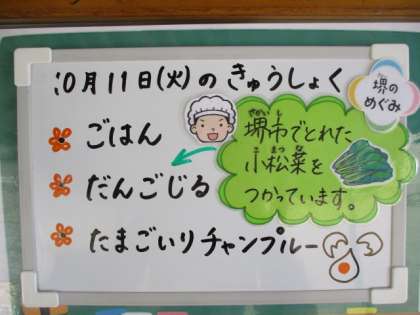 10月11日(火)のきゅうしょく
堺の
めぐみ
ごはん
だんごじる
たまごいりチャンプルー
さかいし
堺市でとれた
こまつな
小松菜を
つかっています。